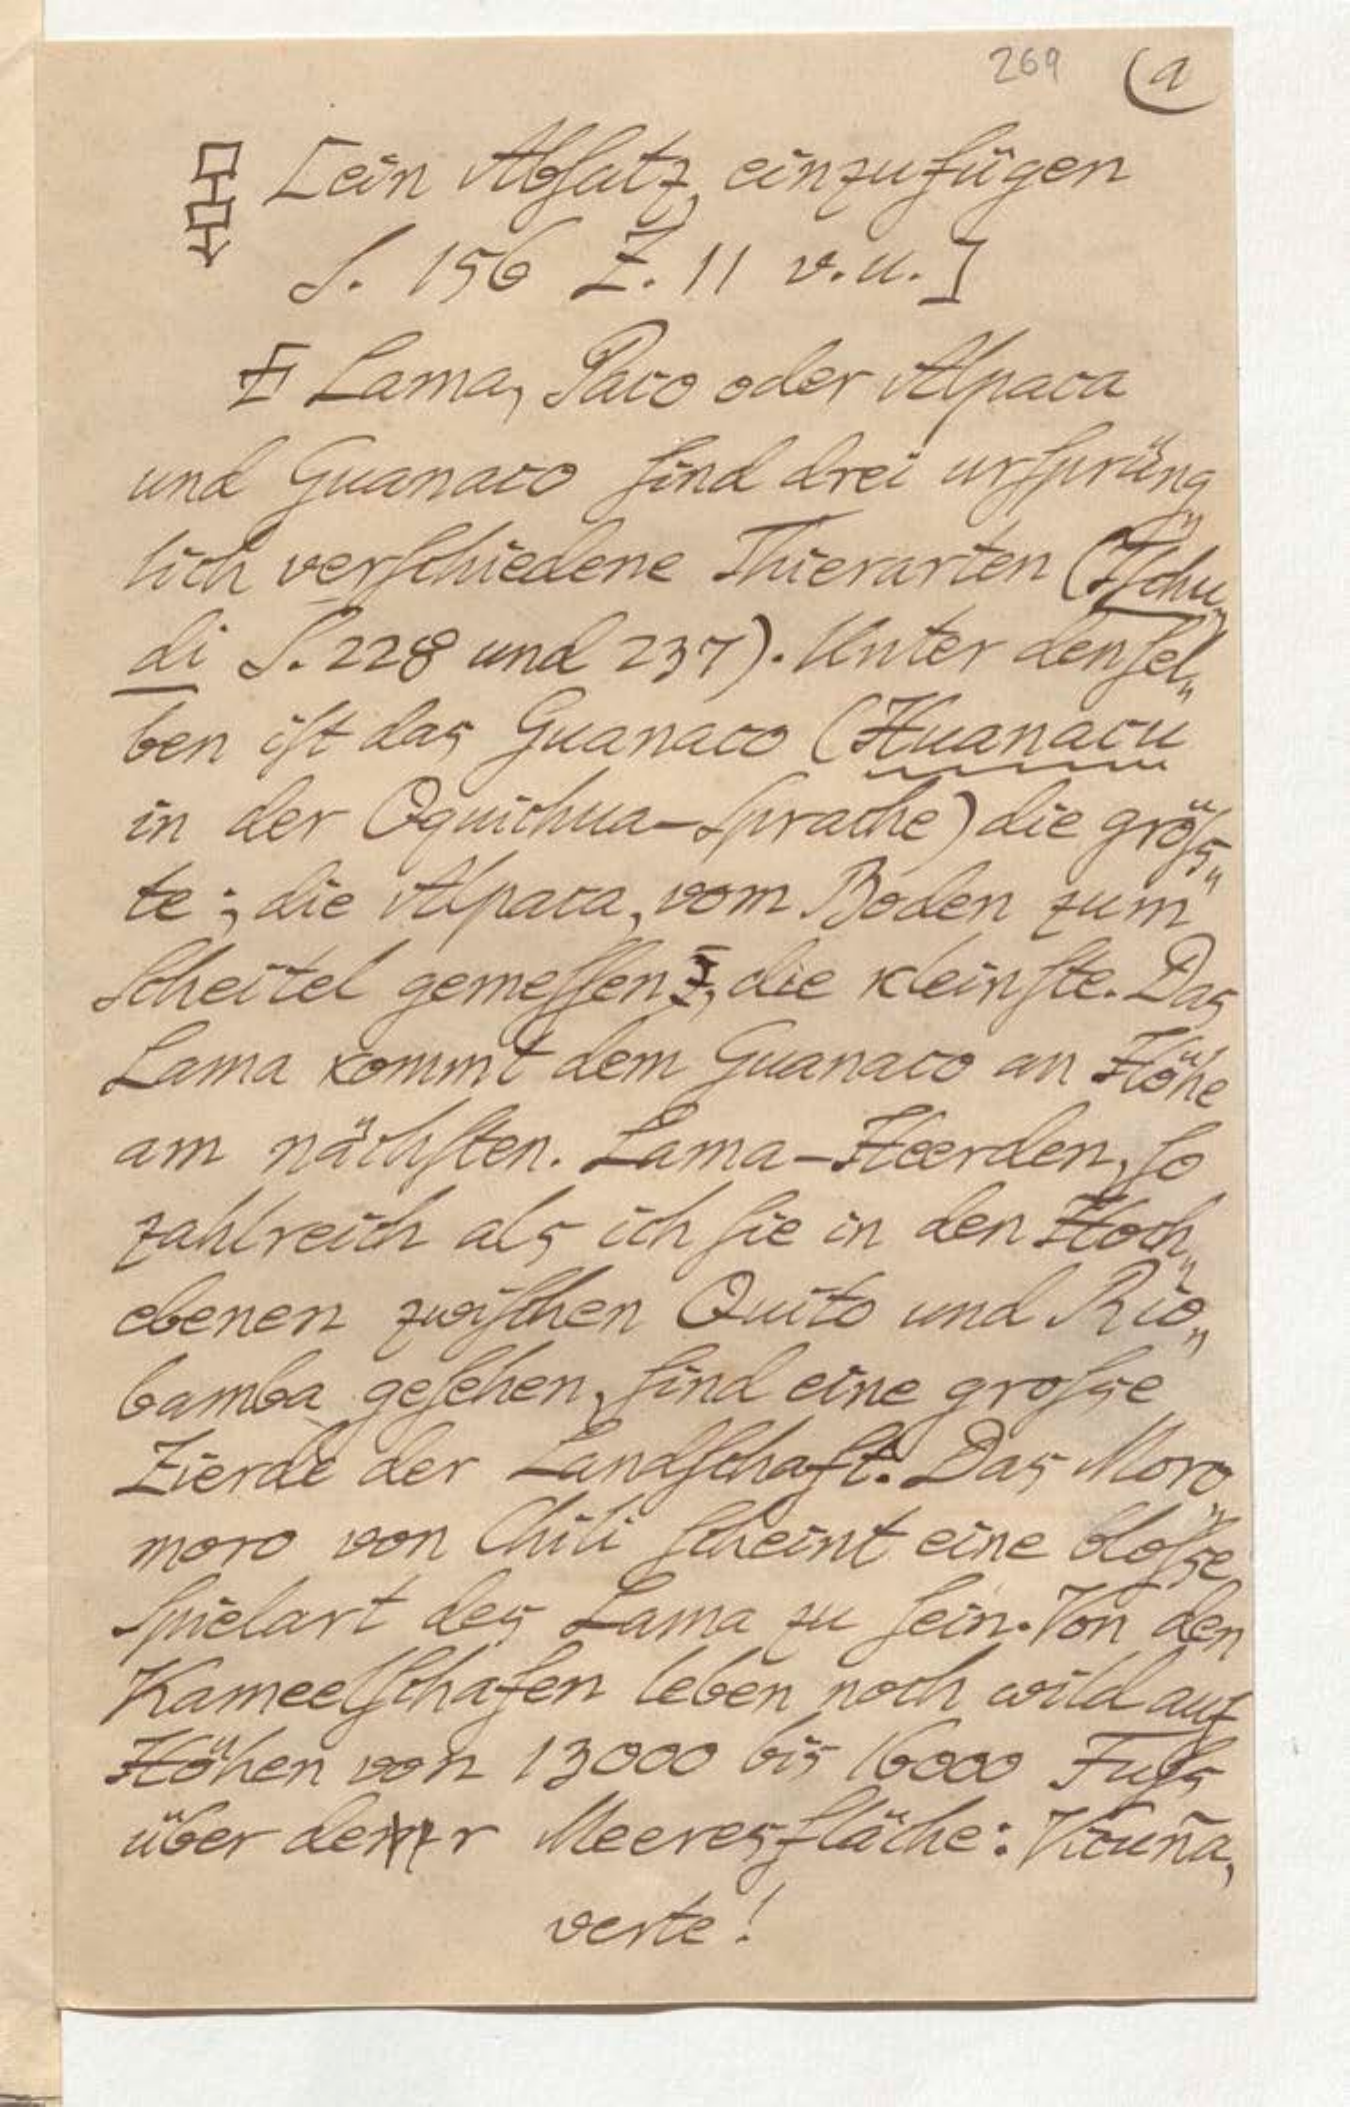 269 (a
[ein Absatz, einzufügen
S. 156 Z. 11 v. u.]
Lama, Paco oder Alpaca
und Guanaco sind drei ursprüng„
lich verschiedene Thierarten (Tschu„
di S. 228 und 237). Unter densel„
ben ist das Guanaco (Huanacu
in der Qquichua-Sprache) die größs„
te; die Alpaca, vom Boden zum
Scheitel gemessen, die kleinste. Das
Lama kommt dem Guanaco an Höhe
am nächsten. Lama-Heerden, so
zahlreich als ich sie in den Hoch„
ebenen zwischen Quito und Rio„
bamba gesehen, sind eine grosse
Zierde der Landschaft. Das Moro„
moro von Chili scheint eine blosse
Spielart des Lama zu sein. Von den
Kameelschafen leben noch wild auf
Höhen von 13000 bis 16000 Fuss
über der Meeresfläche: Vicuña,
verte!